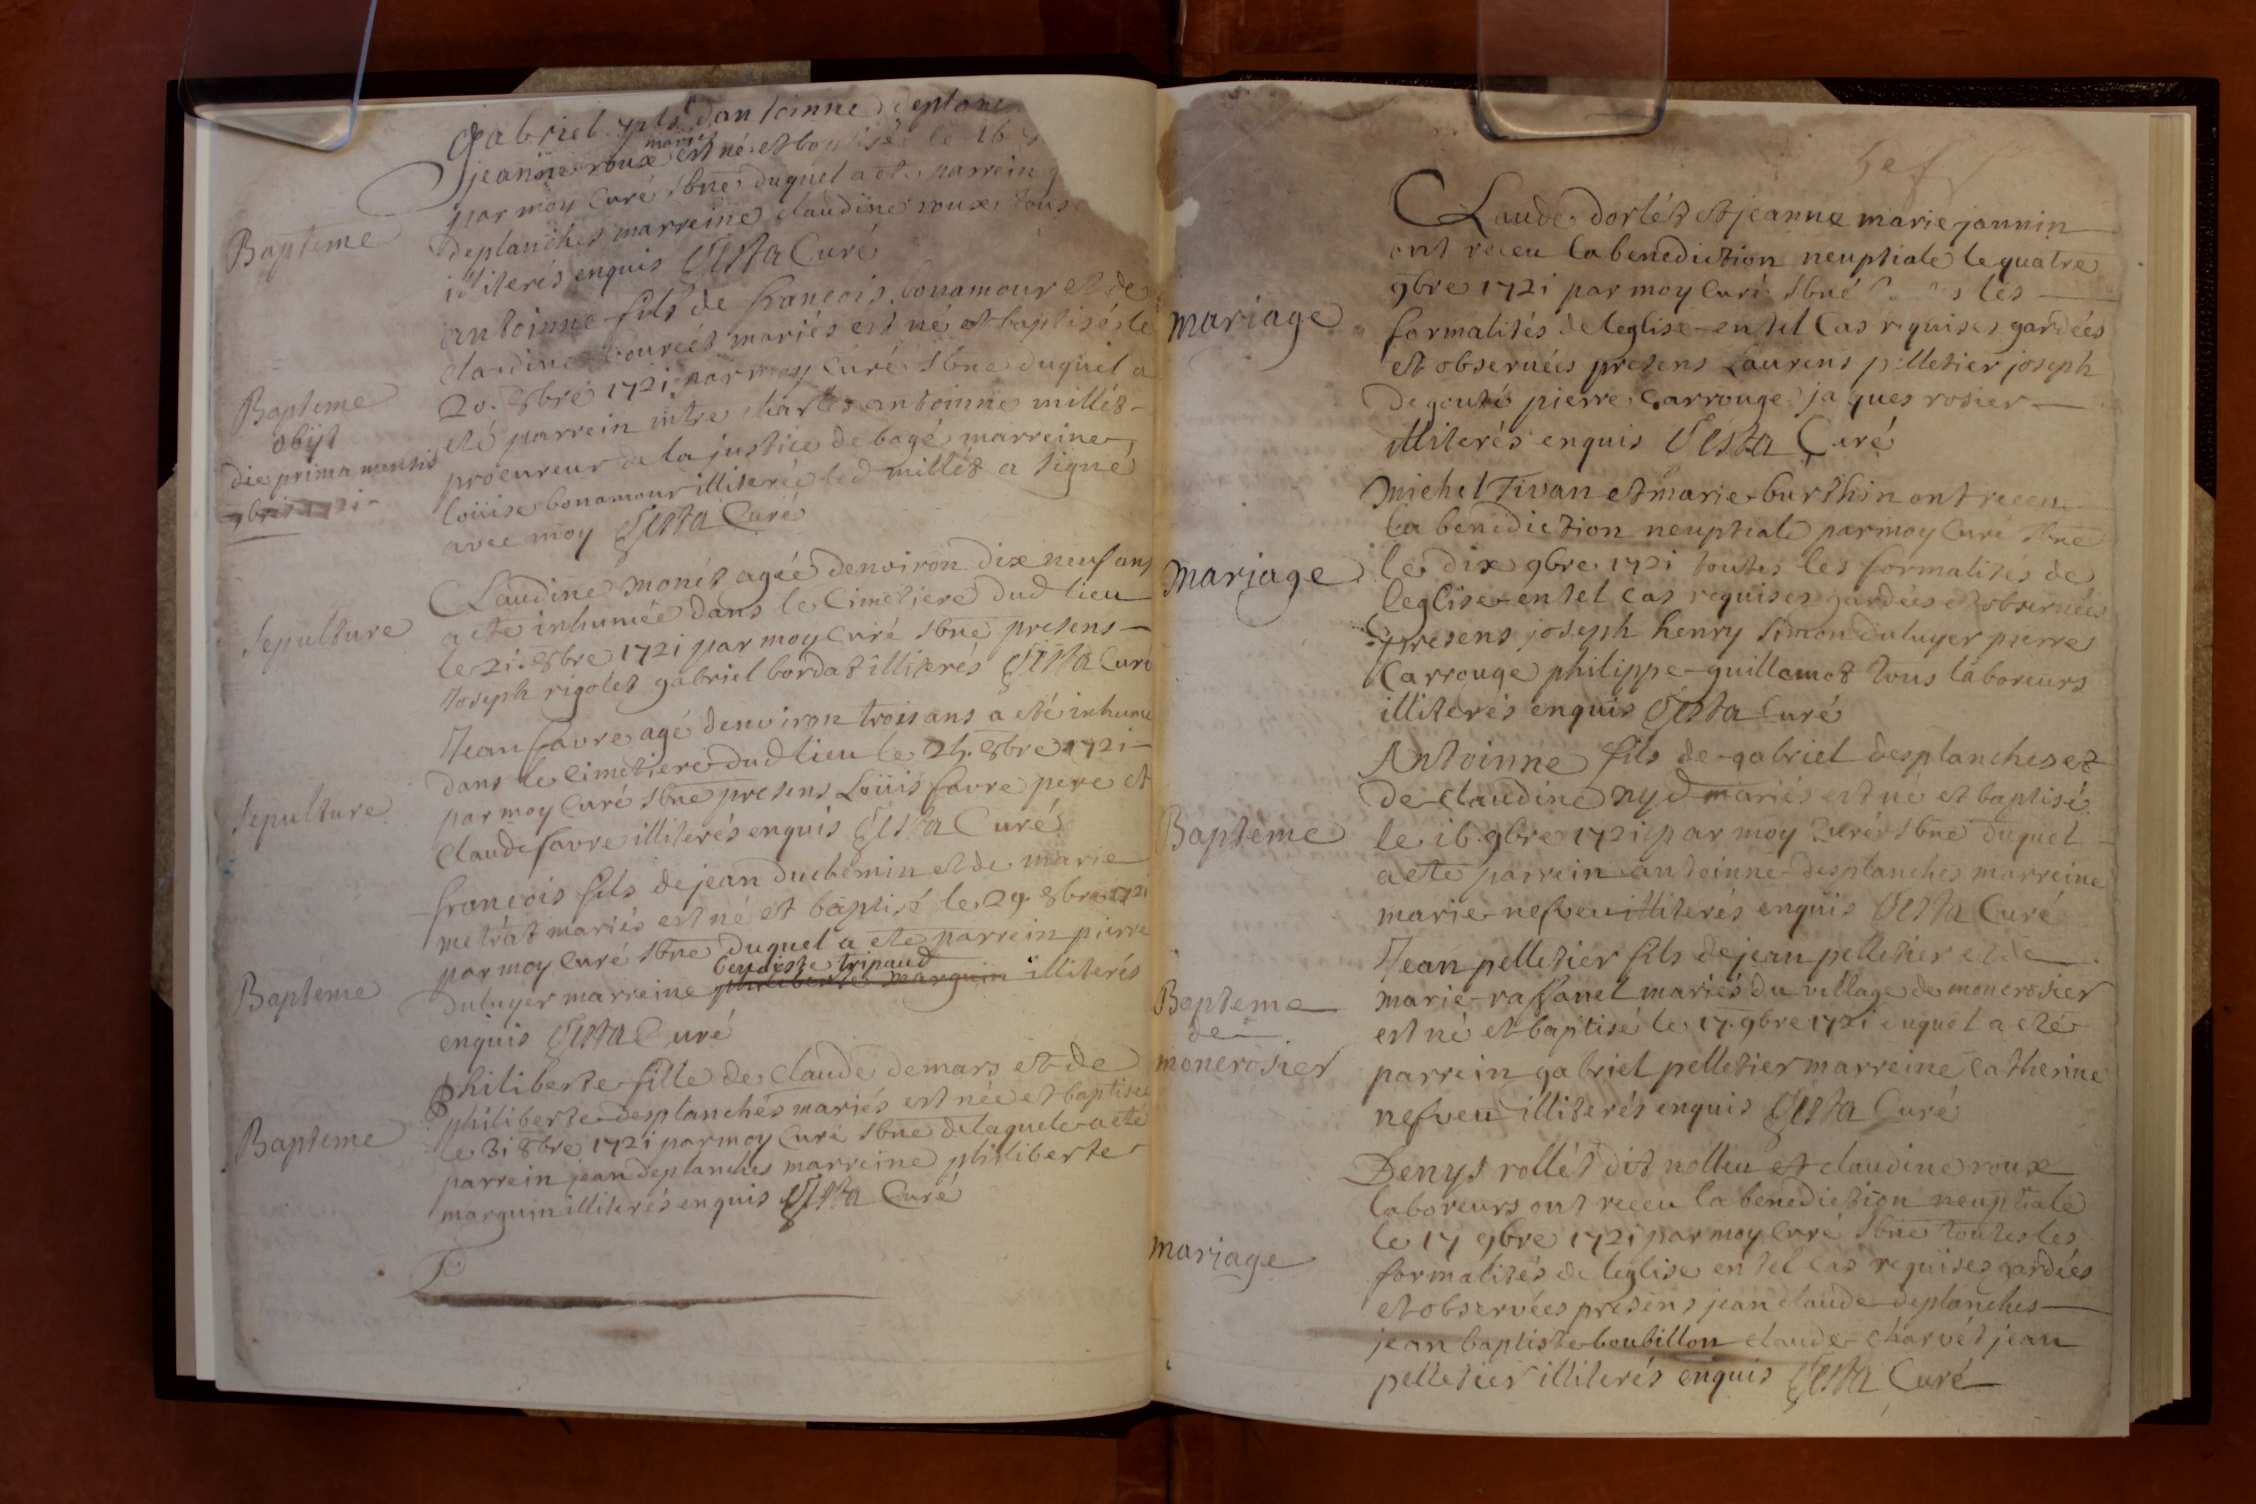 Gabriel fils dantoinne deplanc
mariés
jeanne roux est né et baptisé le 16
par moy Curé sbné duquel a eté parrein
Bapteme
deplanches marreine claudine roux tous
illiterés enquis Vista Curé
antoinne fils de francois bonamour et de
claudine mariés est né et baptisé le
Bapteme
20. 8bre 1721 par moy Curé sbné duquel a
obijt
eté parrein mtre charles antoinne millét
die prima mensis
procureur de la justice de bagé marreine
9bris 1721
loüise bonamour illiterée led millét a signé
avec moy Vista Curé
Claudine monét agée denviron dix neuf ans
a eté inhumée dans le Cimetiere dud lieu
Sepulture
le 21. 8bre 1721 par moy Curé sbné presens
Joseph rigolet gabriel bordat illiterés Vista Curé
Jean favre agé denviron trois ans a eté inhumé
dans le cimetiere dud lieu le 24. 8bre 1721
Sepulture
par moy Curé sbné presens Loüis favre pere et
Claude favre illiterés enquis Vista Curé
francois fils de jean duchemin et de marie
metrat mariés est né et baptisé le 29. 8bre 1721
par moy Curé sbné duquel a eté parrein pierre
bendiste tripaud
Bapteme
duluyer marreine philiberte marguin illiterés
enquis Vista Curé
philiberte fille de claude demars et de
philiberte desplanches mariés est née et baptisée
Bapteme
le 31 8bre 1721 par moy Curé sbné delaquele a eté
parrein jean deplanches marreine philiberte
marguin illiterés enquis Vista Curé
Claude dorlét et jeanne marie jannin
ont receu la benediction neuptiale le quatre
9bre 1721 par moy Curé sbné les
mariage
formalités de leglise en tel Cas requises gardées
et observées presens Laurens pelletier joseph
degouté pierre Carrouge jaques rosier
illiterés enquis Vista Curé
michel Tivan et marie burthin ont receu
la benediction neuptiale par moy Curé sbné
mariage
le dix 9bre 1721 toutes les formalités de
leglise en tel cas requises gardées et observées
presens joseph henry simon duluyer pierre
Carrouge philippe guillamot tous laboreurs
illiterés enquis Vista Curé
Antoinne fils de gabriel desplanches et
de claudine nyd mariés est né et baptisé
Bapteme
le 16. 9bre 1721 par moy Curé sbné duquel
a eté parrein antoinne desplanches marreine
marie nesveu illiterés enquis Vista Curé
Jean pelletier fils de jean pelletier et de
Bapteme
marie raffanel mariés du village de moncrosier
de
est né et baptisé le 17. 9bre 1721 duquel a eté
moncrosier
parrein gabriel pelletier marreine catherine
nesveu illiterés enquis Vista Curé
Denys rollét dit nolleu et claudine roux
laboreurs ont receu la benediction neuptiale
le 17 9bre 1721 par moy Curé sbné toutes les
mariage
formalités de leglise en tel cas requises gardées
et observées presens jean claude deplanches
jean baptiste boubillon claude charvét jean
pelletier illiterés enquis Vista Curé